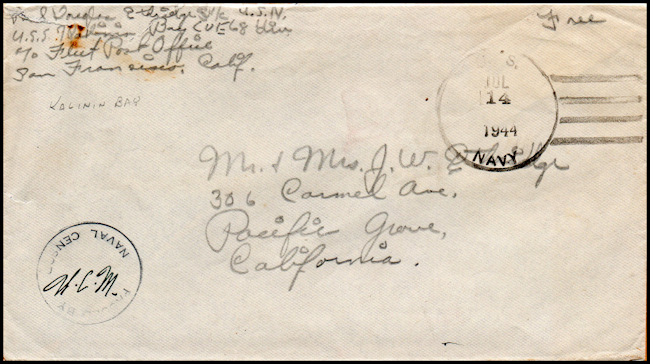 Douglas Ethridge S1/c U.S.N.
U.S.S. Kalinin Bay CVE68 Div.
c/o Fleet Post Office
San Francisco, Calif.
Free
KALININ BAY
U.S.
JUL
14
1944
NAVY
Mr. & Mrs. J. W. Ethridge
306 Carmel Ave.
Pacific Grove,
California.
PASSED BY
NAVAL CENSOR